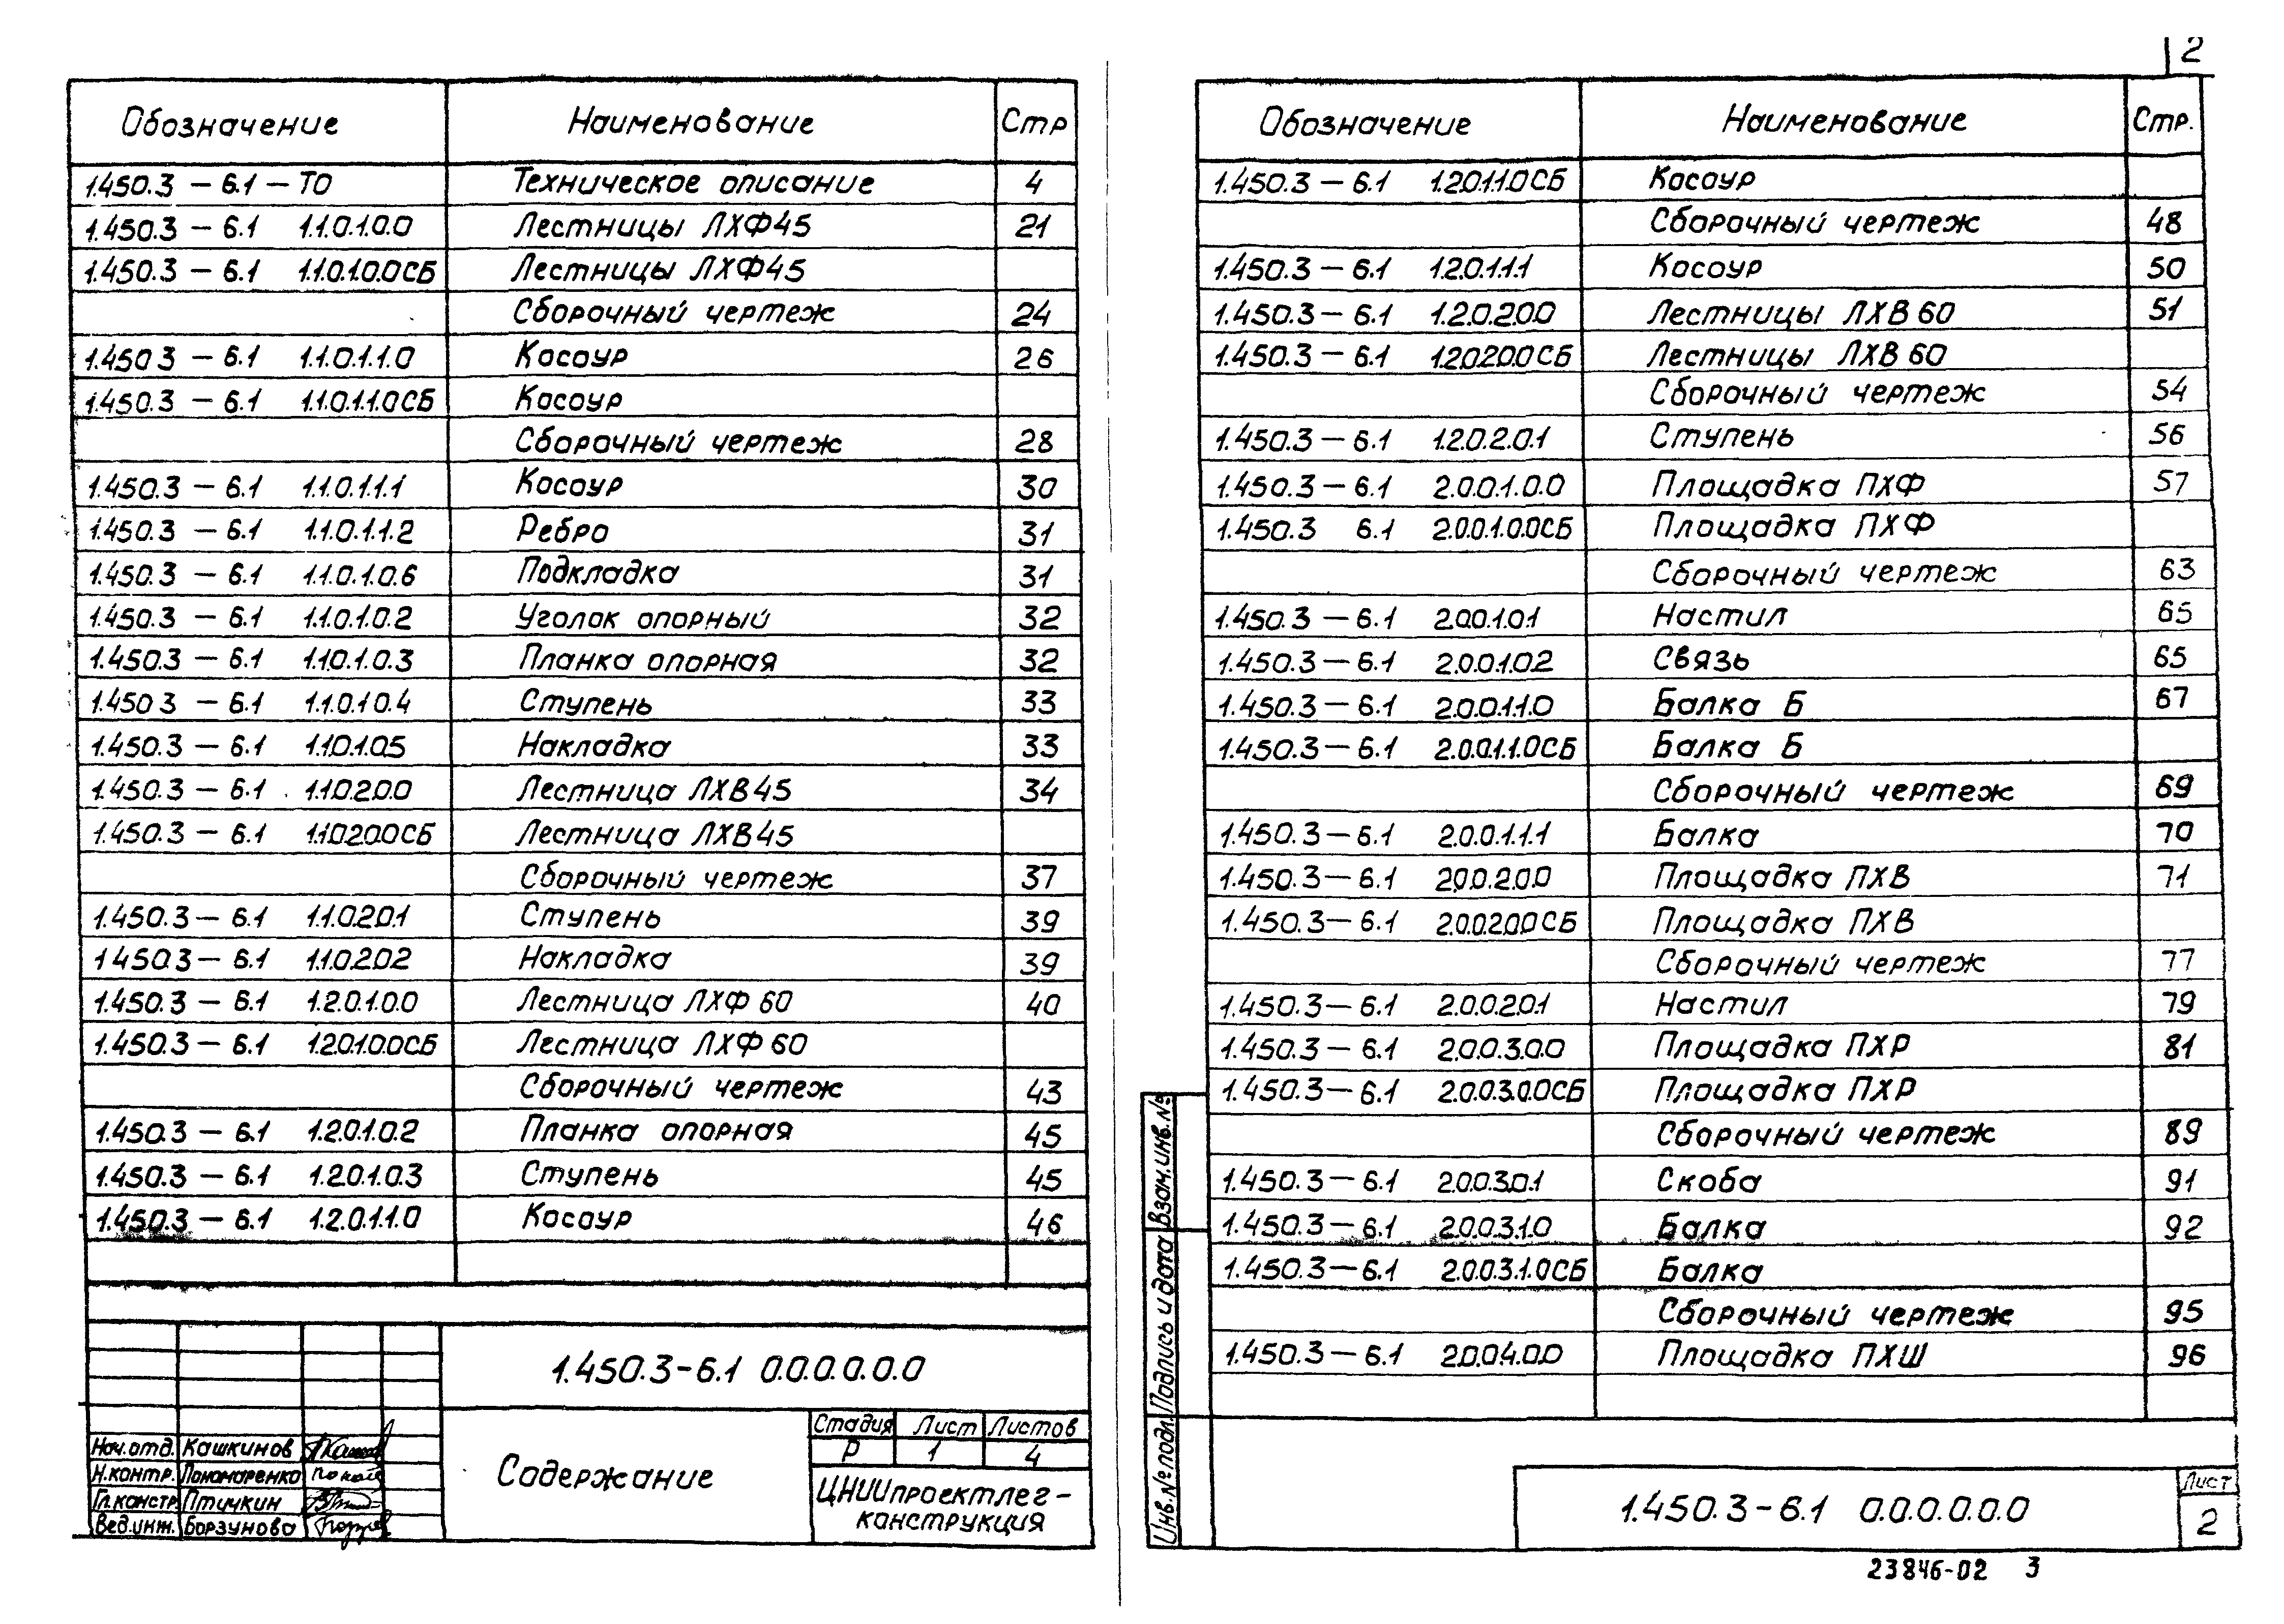 2
Обозначение Наименование Стр
1.450.3 – 6.1 – ТО Техническое описание 4
1.450.3 – 6.1 1.1.0.1.0.0 Лестницы ЛХФ45 21
1.450.3 – 6.1 1.1.0.1.0.0СБ Лестницы ЛХФ45
Сборочный чертеж 24
1.450 3 – 6.1 1.1.0.1.1.0 Косоур 26
1.450.3 – 6.1 1.1.0.1.1.0СБ Косоур
Сборочный чертеж 28
1.450.3 – 6.1 1.1.0.1.1.1 Косоур 30
1.450.3 – 6.1 1.1.0.1.1.2 Ребро 31
1.450.3 – 6.1 1.1.0.1.0.6 Подкладка 31
1.450.3 – 6.1 1.1.0.1.0.2 Уголок опорный 32
1.450.3 – 6.1 1.1.0.1.0.3 Планка опорная 32
1.450 3 – 6.1 1.1.0.1 0.4 Ступень 33
1.450.3 – 6.1 1.1.0.1.0.5 Накладка 33
1.450.3 – 6.1 1.1.0.2.0.0 Лестница ЛХВ45 34
1.450.3 – 6.1 1.1.0.2.0.0СБ Лестница ЛХВ45
Сборочный чертеж 37
1.450.3 – 6.1 1.1.0.2.0.1 Ступень 39
1 450.3 – 6.1 1.1.0.2.0.2 Накладка 39
1.450.3 – 6.1 1.2.0.1.0.0 Лестница ЛХФ 60 40
1.450.3 – 6.1 1.2.0.1.0.0СБ Лестница ЛХФ 60
Сборочный чертеж 43
1.450.3 – 6.1 1.2.0.1.0.2 Планка опорная 45
1.450.3 – 6.1 1.2.0.1.0.3 Ступень 45
1.450.3 – 6.1 1.2.0.1.1.0 Косоур 46
1.450.3-6.1 0.0.0.0.0.0
Содержание
Стадия Лист Листов
Р 1 4
ЦНИИпроектлег-
конструкция
Нач.отд. Кашкинов
Н.контр. Пономаренко
Гл.констр. Птичкин
Вед.инж. Борзунова
Обозначение Наименование Стр.
1.450.3 – 6.1 1.2.0.1.1.0СБ Косоур
Сборочный чертеж 48
1.450.3 – 6.1 1.2.0.1.1.1 Косоур 50
1.450.3 – 6.1 1.2.0.2.0.0 Лестницы ЛХВ 60 51
1.450.3 – 6.1 1.2.0.2.0.0СБ Лестницы ЛХВ 60
Сборочный чертеж 54
1.450.3 – 6.1 1.2.0.2.0.1 Ступень 56
1.450.3 – 6.1 2.0.0.1.0.0 Площадка ПХФ 57
1.450.3 6.1 2.0.0.1.0.0СБ Площадка ПХФ
Сборочный чертеж 63
1.450.3 – 6.1 2.0.0.1.0.1 Настил 65
1.450.3 – 6.1 2.0.0.1.0.2 Связь 65
1.450.3 – 6.1 2.0.0.1.1.0 Балка Б 67
1.450.3 – 6.1 2.0.0.1.1.0СБ Балка Б
Сборочный чертеж 69
1.450.3 – 6.1 2.0.0.1.1.1 Балка 70
1.450.3 – 6.1 2.0.0.2.0.0 Площадка ПХВ 71
1.450.3 – 6.1 2.0.0.2.0.0СБ Площадка ПХВ
Сборочный чертеж 77
1.450.3 – 6.1 2.0.0.2.0.1 Настил 79
1.450.3 – 6.1 2.0.0.3.0.0 Площадка ПХР 81
1.450.3 – 6.1 2.0.0.3.0.0СБ Площадка ПХР
Сборочный чертеж 89
1.450.3 – 6.1 2.0.0.3.0.1 Скоба 91
1.450.3 – 6.1 2.0.0.3.1.0 Балка 92
1.450.3 – 6.1 2.0.0.3.1.0СБ Балка
Сборочный чертеж 95
1.450.3 – 6.1 2.0.0.4.0.0 Площадка ПХШ 96
Взам.инв.№
Подпись и дата
Инв.№ подл.
1.450.3-6.1 0.0.0.0.0.0
Лист
2
23846-02 3